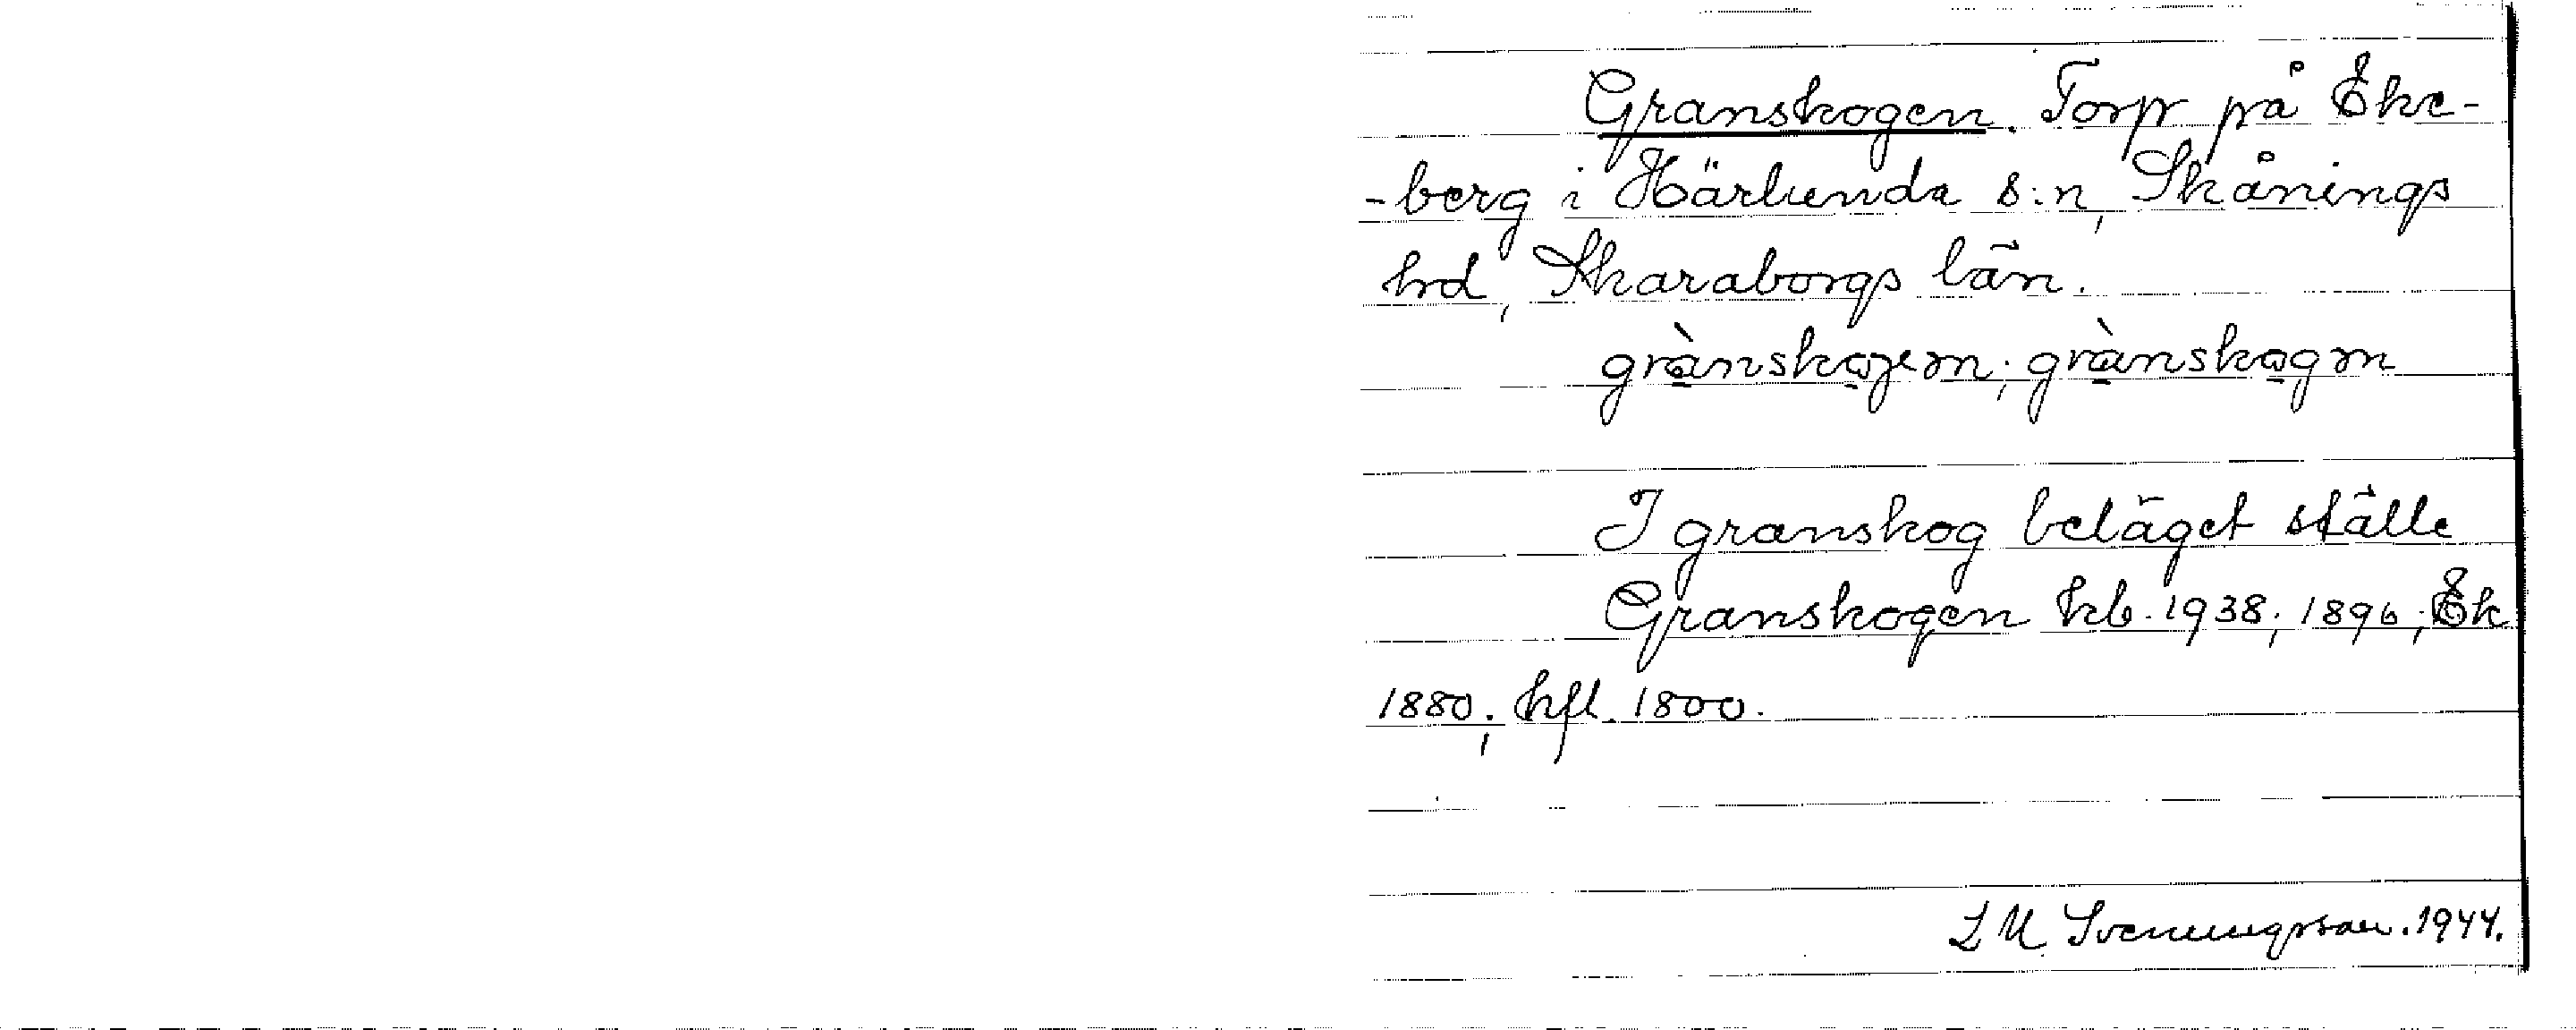 Granskogen. Torp på Eke-
-berg i Härlunda s:n, Skånings
hrd, Skaraborgs län.
grànskoɡem; grànskogm
I granskog beläget ställe
Granskogen kb. 1938; 1896; Ek
1880; hfl. 1800.
L M Svenungsson. 1944.